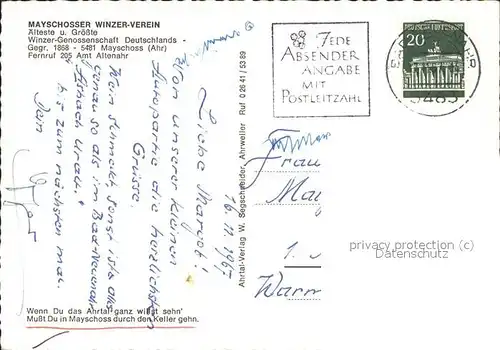 MAYSCHOSSER WINZER-VEREIN
Älteste u. Größte
Winzer-Genossenschaft Deutschlands -
Gegr. 1868 - 5481 Mayschoss (Ahr)
Fernruf 205 Amt Altenahr
JEDE
ABSENDER
ANGABE
MIT
POSTLEITZAHL
20
16.11.1967
Liebe Margot!
Von unserer kleinen
Autopartie die herzlichsten
Grüsse.
Wein schmeckt, sonst ist alles
genau so als im Bad Neuenahr
Asbach Uralt.
Bis zum nächsten mal
Dein
Ahrtal-Verlag W. Segschneider Ahrweiler Ruf 0 26 41 / 53 89
Frau
1.
privacy protection (c)
Datenschutz
Wenn Du das Ahrtal ganz willst sehn'
Mußt Du in Mayschoss durch den Keller gehn.